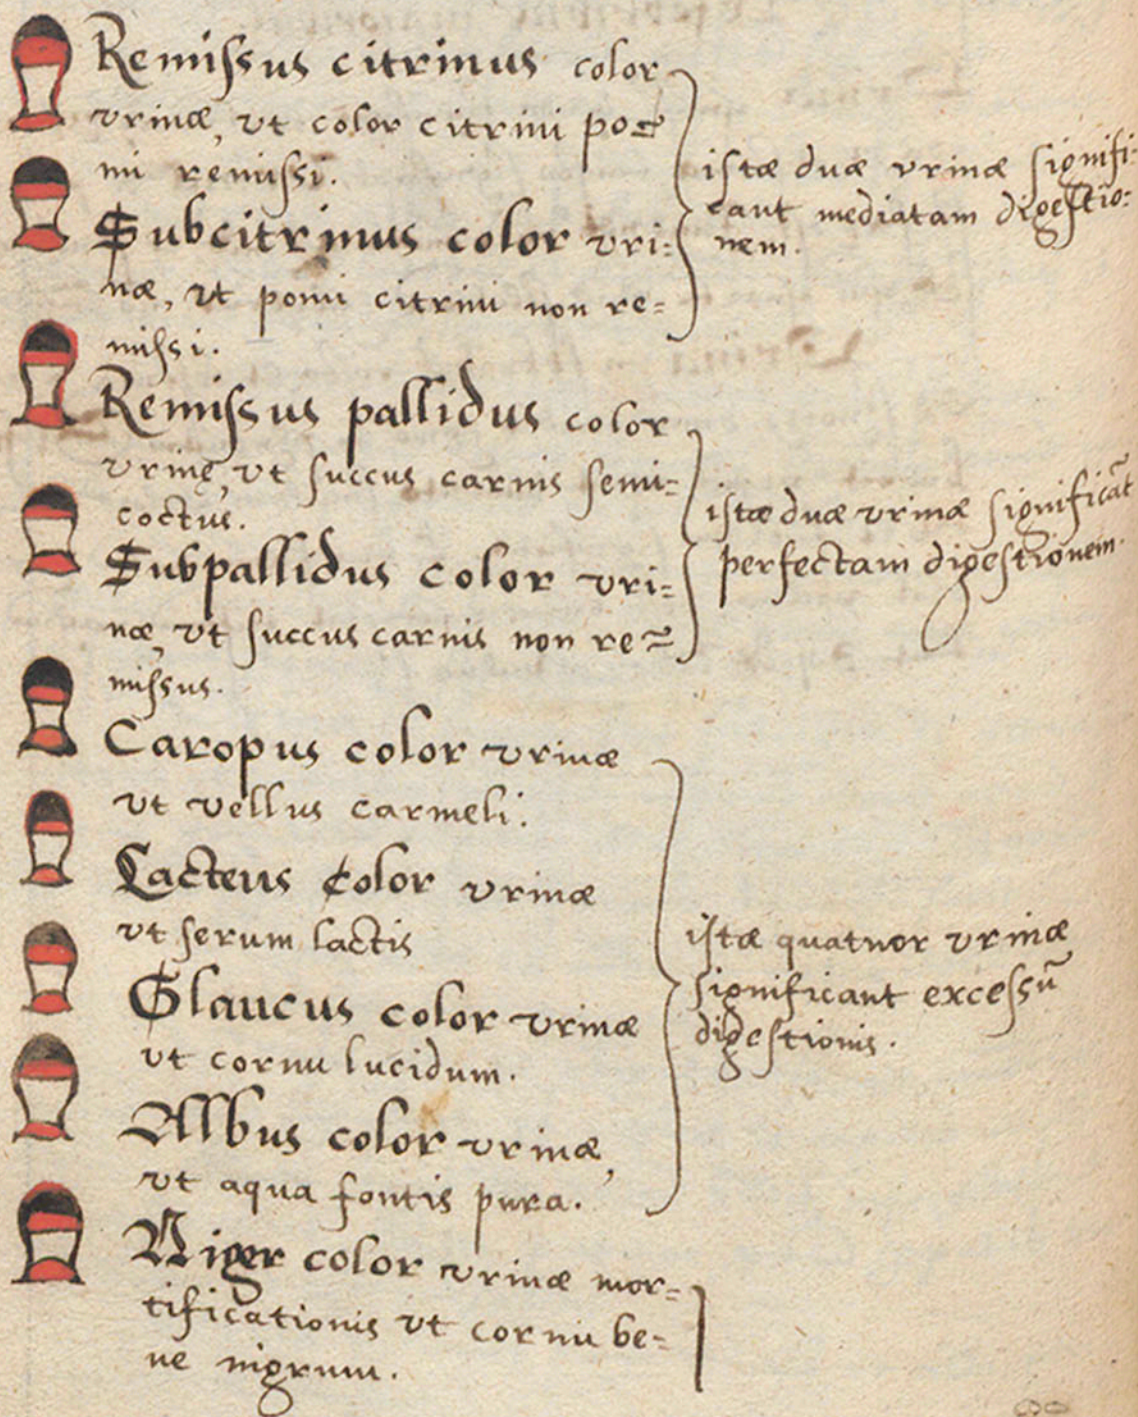 Remiſsus citrinus color
vrinæ, vt color citrini po=
mi remiſsi.
Subcitrinus color vri=
næ, vt pomi citrini non re=
miſsi.
iſtæ duæ vrinæ ſignifi=
cant mediatam digeſtio=
nem.
Remiſsus pallidus color
vrinę, vt ſuccus carnis ſemi=
coctus.
Subpallidus color vri=
næ, vt ſuccus carnis non re=
miſsus.
iſtæ duæ vrinæ ſignificãt
perfectam digeſtionem.
Caropus color vrinæ
vt vellus carmeli.
Lacteus color vrinæ
vt ſerum lactis
Glaucus color vrinæ
vt cornu lucidum.
Albus color vrinæ,
vt aqua fontis pura.
iſtæ quatuor vrinæ
ſignificant exceſsũ
digeſtionis.
Niger color vrinæ mor=
tificationis vt cornu be=
ne nigrum.